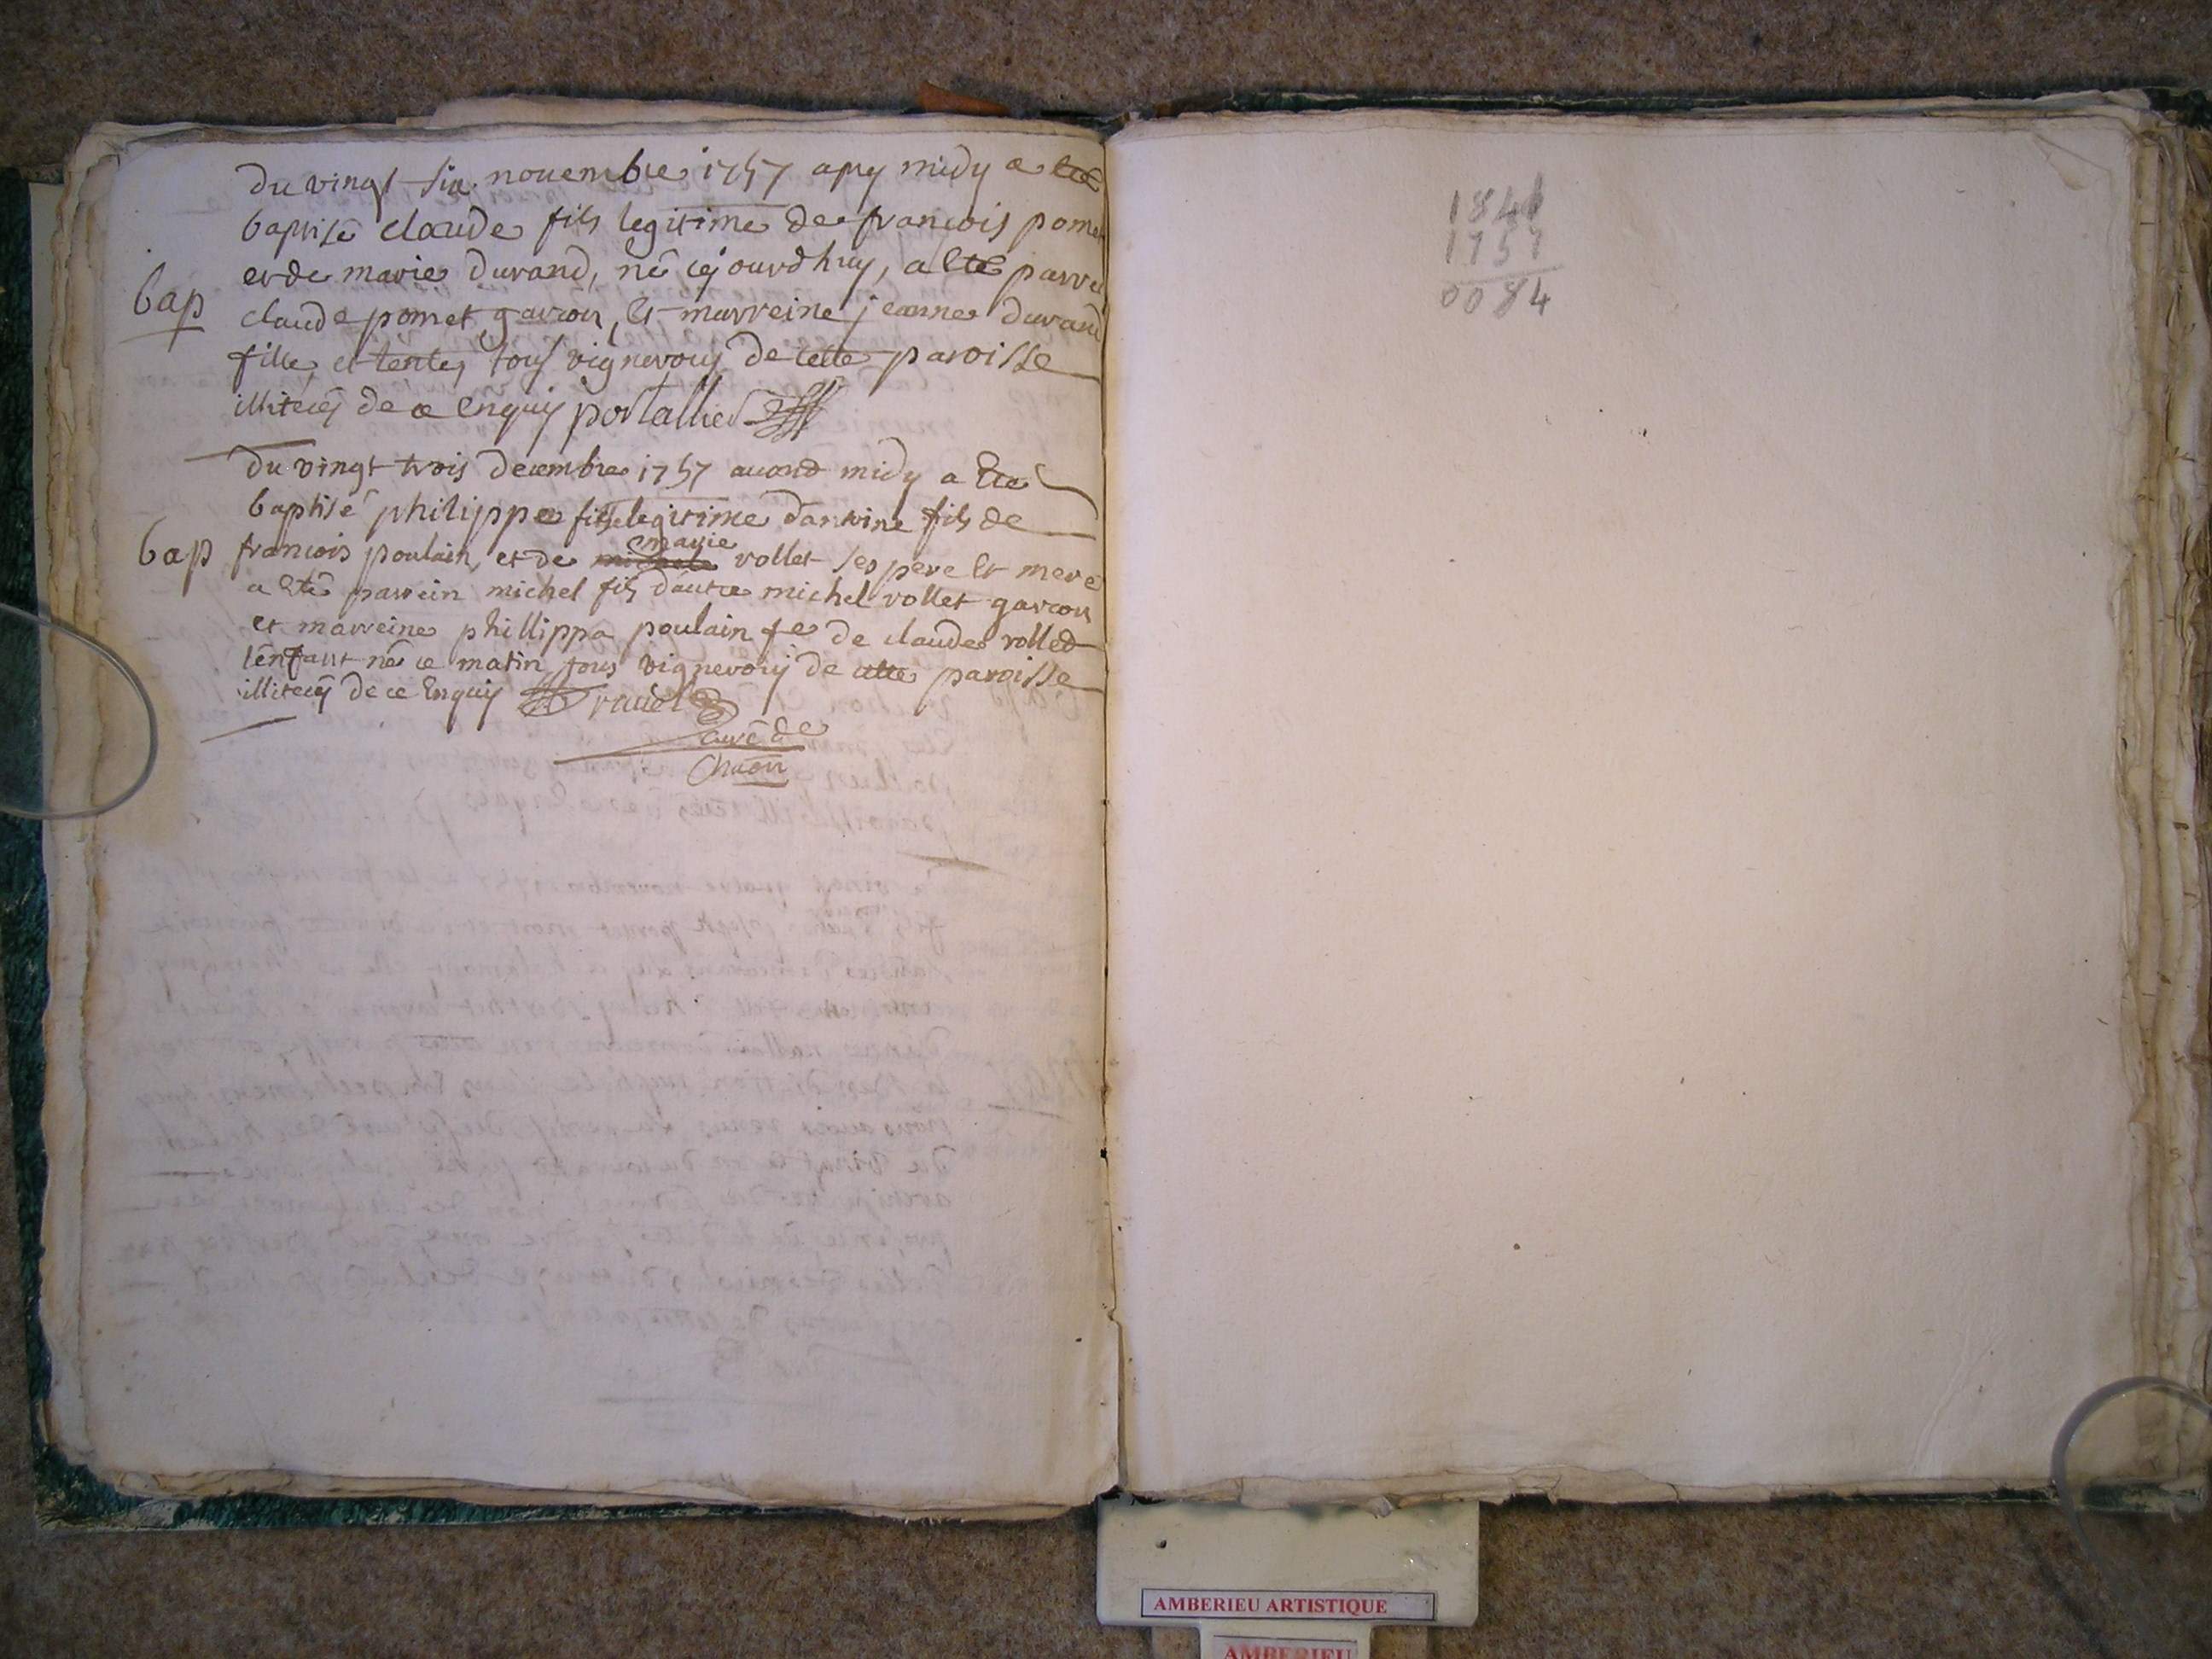 du vingt six novembre 1757 apry midy a eté
baptisé claude fils legitime de françois pomet
et de marie durand, né cejourdhuy, a eté parre
bap
claude pomet garcon, et marreine jeanne durand
fille, et tente, tous vignerons de cette paroisse
illiterés de ce enquis portallier
du vingt trois decembre 1757 avand midy a eté
baptisé philippe fils legitime dantoine fils de
bap
francois poulain, et de marie vollet ses pere et mere
a eté parrein michel fils dautre michel vollet garcon
et marreine phillippa poulain fe de claude volled
lenfant né ce matin tous vignerons de cette paroisse
illiterés de ce enquis ravier
curé de
1841
1757
0084
AMBERIEU ARTISTIQUE
AMBERIEU